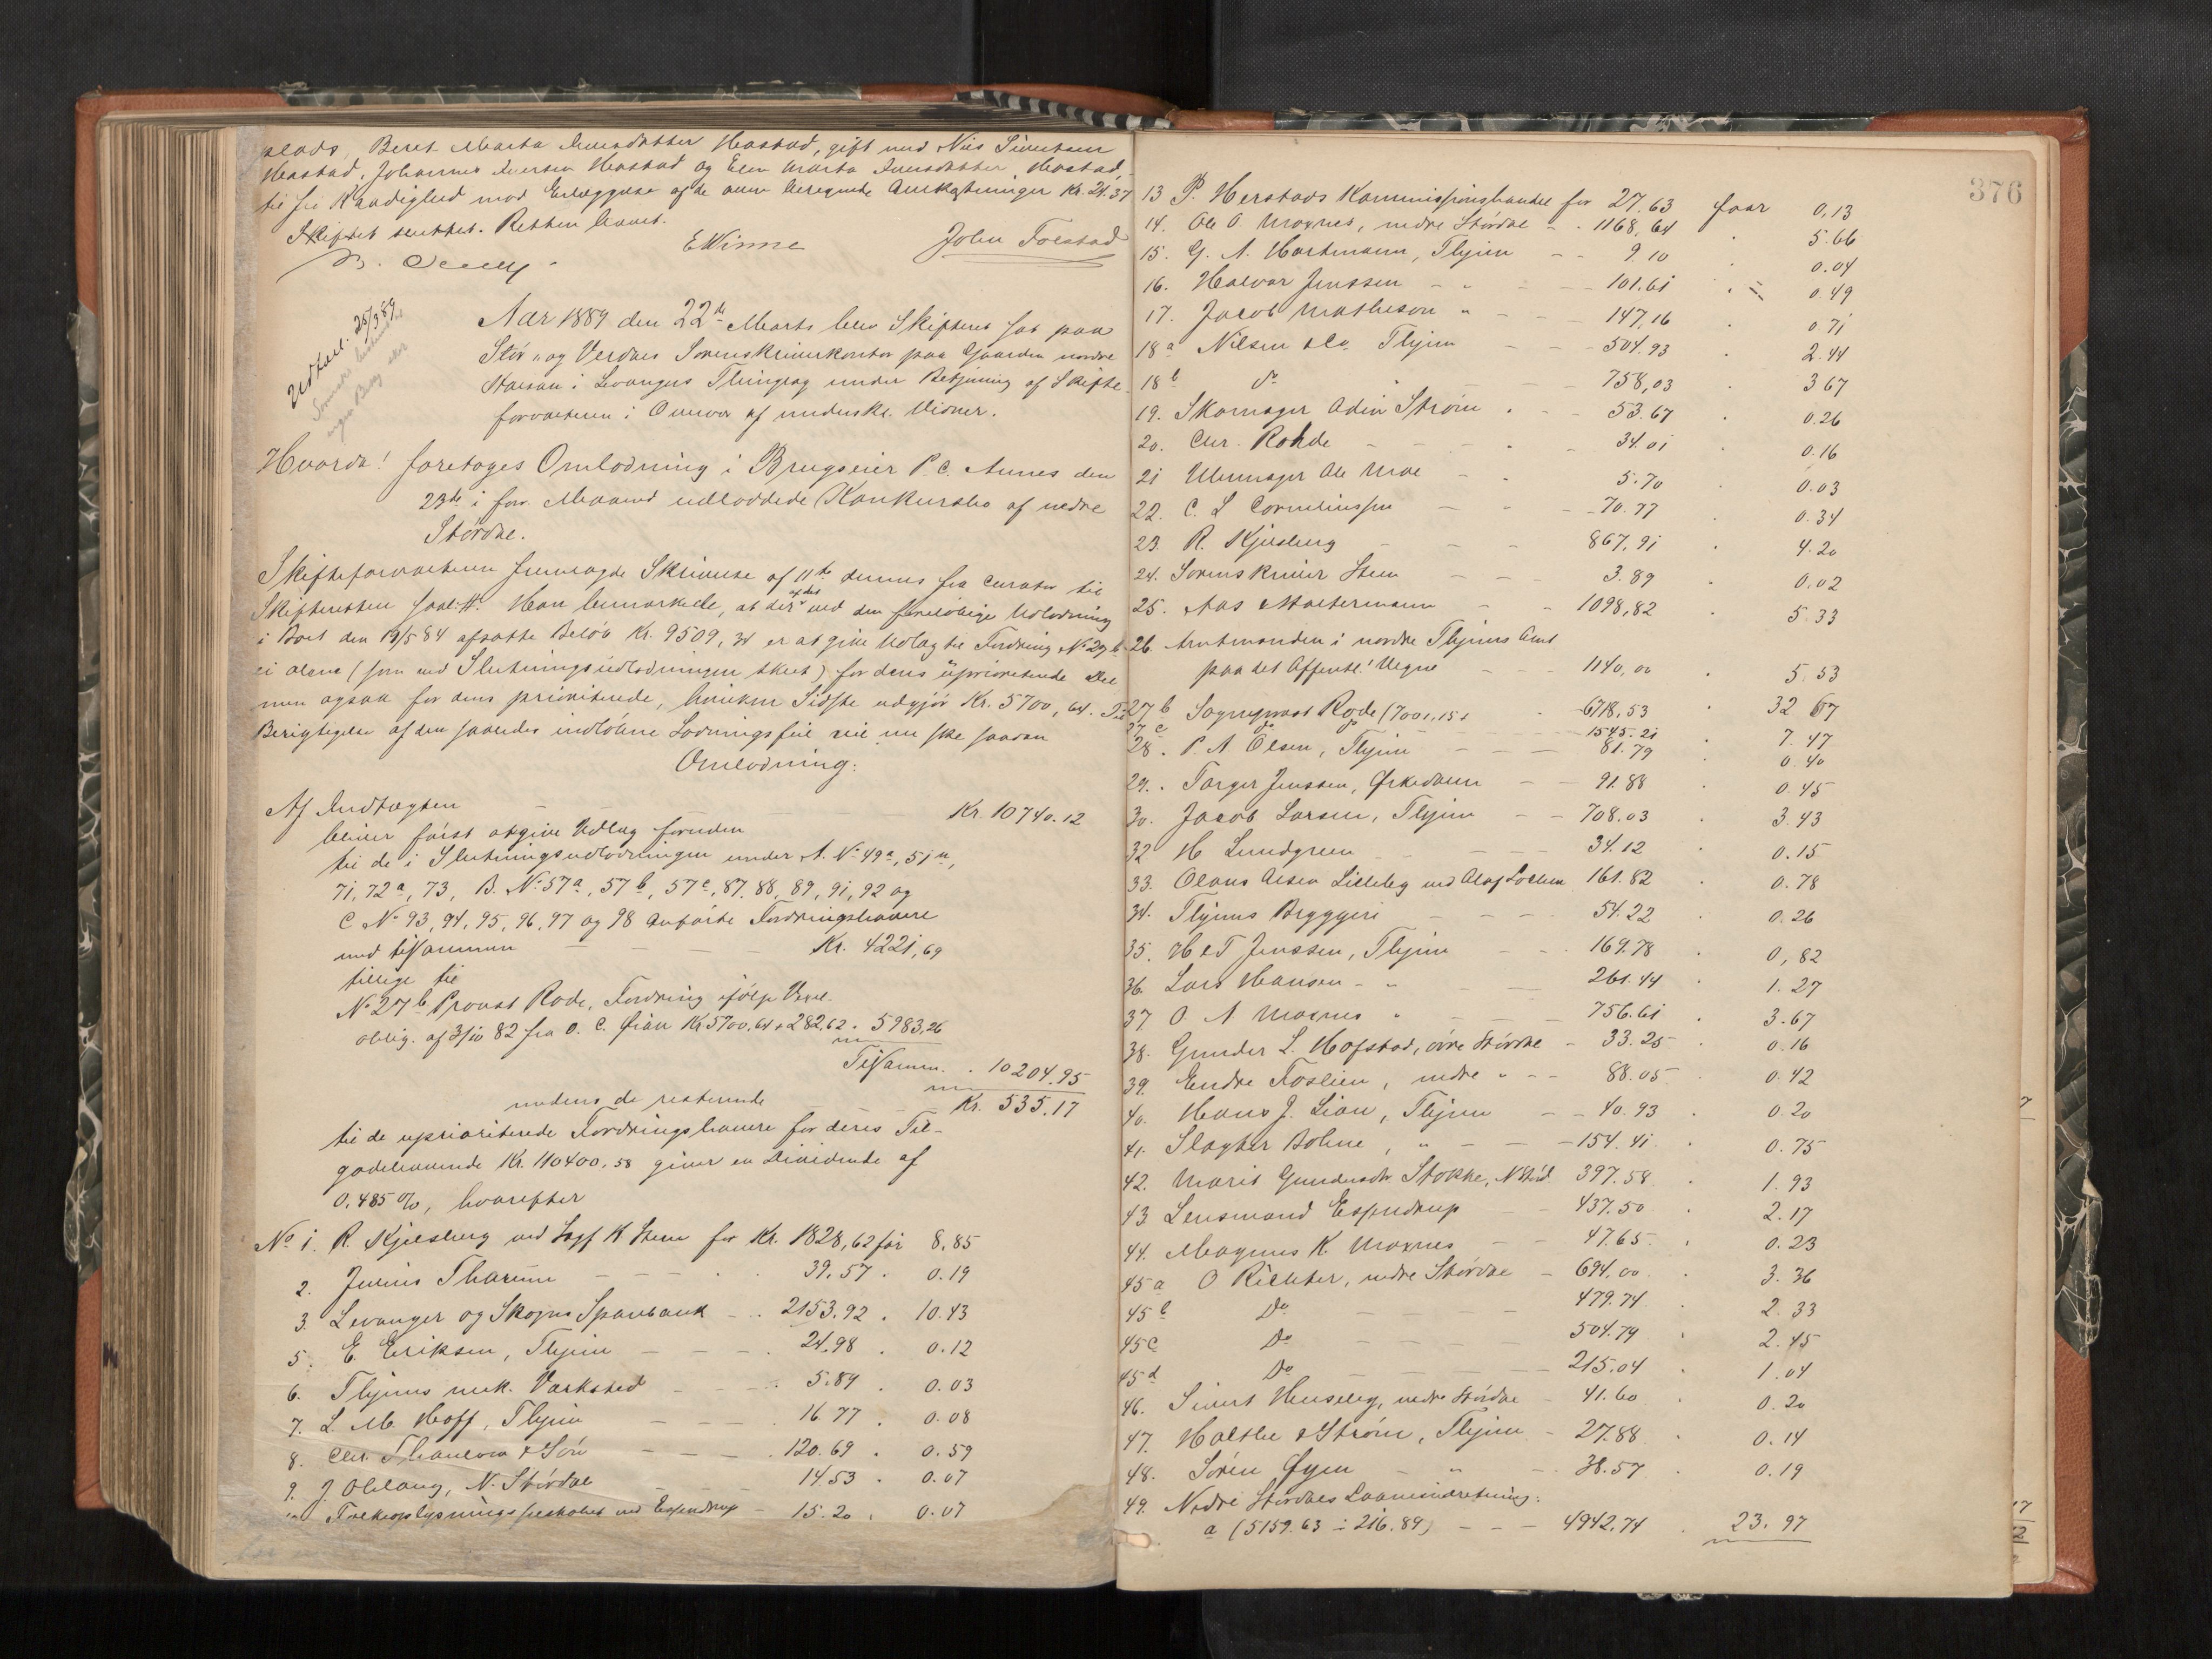 plads, Beret Marta Iversdatter Hastad, gift med Nils Sivertsen
Hastad, Johannes Iversen Hastad og Elen Marta Iversdatter Hastad,
til fri Raadighed mod Erlæggelse af de dem beregnede Omkostninger Kr. 21.37
Skiftet sluttet. Retten hævet.
EWinne
John Folstad
Udfærd. 25/3 89
Aar 1889 den 22de Marts blev Skifteret sat paa
Stør- og Verdals Sorenskriverkontor paa Gaarden nordre
i Levangers Thinglag under Betjening af Skifte-
forvalteren i Overvær af underskr. Vidner.
Hvorda! foretoges Omlodning i Brugseier P. C. Aunes den
23de i forr. Maaned udloddede Konkursbo af nedre
Stördal.
Skifteforvalteren fremlagde Skrivelse af 11te dennes fra Curator til
Skifteretten saal. #. Han bemærkede, at der af det ved den foreløbige Udlodning
i Boet den 19/5 84 afsatte Beløb Kr. 9509,34 er at give Udlæg til Fordring No 27 b
ei alene (som ved Slutningsudlodningen skeet) for dens upriviterede Del
men ogsaa for dens prioriterede, hvilken Sidste udgjør Kr. 5700,64. Til
Berigtigelse af den saaledes indløbne Lodningsfeil vil nu ske saadan
Omlodning:
Af Indtægten — — — Kr. 10740.12
bliver først at give Udlæg foruden
til de i Slutningsudlodningen under A. No 49a, 51a,
71, 72a, 73, B. No 57a, 57b, 57c, 87, 88, 89, 91, 92 og
C No 93, 94, 95, 96, 97 og 98 anførte Fordringshavere
med tilsammen — — — Kr. 4221,69
tillige til
No 27b Provst Rode, Fordring ifølge Vexel-
oblig. af 3/10 82 fra O. C. Kr 5700,64 + 282,62 . 5983,26
Tilsamm. . 10204.95
medens de resterende — — — Kr. 535.17
til de uprioriterede Fordringshavere for deres Til-
godehavende Kr. 110400,58 giver en Dividende af
0,485 %, hvorefter
No 1. R. Kjelsberg ved Sagf K Steen for Kr. 1828,62 får 8,85
2. Julius Thaulow — — — 39,57 . 0.19
3. Levanger og Skogns Sparebank — . 2153.92 . 10.43
5. E. Eriksen, Thjem — — — 24.98 . 0.12
6. Thjems mek. Værksted — — 5.89 . 0.03
7. L. M. Hoff, Thjem — — — 16.77 . 0.08
8. Chr. Thaulow & Søn — — — 120.69 . 0.59
9. J Oldlang, N. Stördal 14.53 . 0.07
" Folkeoplysningsselskabet ved Espendrup — 15.20 . 0.07
376
13 P. Herstads Kommissionshandel for 27.63 faar 0,13
14. Ole O Moxnes, nedre Stördal — . 1168,64 5.66
15. G. A. Hartmann, Thjem — — 9.10 0.04
16. Halvor Jenssen — " — — 101.61 . 0.49
17. Jacob Matheson " — — 147,16 0.71
18a Nilsen & Co. Thjem — — 504.93 . 2.44
18b do " — — 758,03 . 3 67
19. Skomager Odin Strøm . — — 53.67 . 0.26
20. Chr. Rohde — — — 34.01 . 0.16
21 Uhrmager Ole Moe — — 5.70 . 0.03
22. C. L Corneliussen — — 70.77 . 0.34
23. R. Kjelsberg — — — 867,91 . 4.20
24. Sorenskriver Steen — — 3.89 . 0,02
25. Aas & Waltermann — — 1098,82 . 5.33
26. Amtmanden i nordre Thjems Amt
paa det Offentl! Vegne — — 1140,00 . 5.53
27 b Sogneprest Rode (7001,15 ÷ 6718,53 . 32 57
27 c do do 1545.21 . 7.47
28. P. A. Olsen, Thjem — — — 81.79 . 0.40
29. Torger Jenssen, Ørkedalen — — 91.88 . 0.45
30. Jacob Larsen, Thjem — — 708.03 . 3.43
32 H Lundgreen — — — 34.12 . 0.15
33. Olaus Olsen Lilleby ved Oluf Løkken 161.82 . 0.78
34. Thjems Bryggeri — — — 54.22 . 0.26
35. H & T Jenssen, Thjem — — 169.78 . 0,82
36. Lars Hansen — " — — 261.44 . 1.27
37 O. A Moxnes " — — 756.61 . 3.67
38. Gunder L. Hofstad, övre Stördal — 33.25 . 0.16
39. Endre Foslien, nedre " — — 88.05 . 0.42
40. Hans J. Lian, Thjem — — 40.93 . 0.20
41. Slagter Bohne, " — — — 154.41 . 0.75
42. Marit Gundersdr Stokke, N Størd. 397.58 . 1.93
43. Lensmand Espendrup — — 437.50 . 2.17
44. Magnus K. Moxnes — — 47.65 . 0.23
45 a O Richter, nedre Stördal — 694,00 . 3.36
45 b Do — — — 479.74 . 2.33
45 c Do — — — 504.79 . 2.45
45 d Do — — — 215.04 . 1.04
46. Sivert Husseby, nedre Stördal — 41.60 . 0.20
47. Halseth & Strøm, Thjem — 27.88 . 0.14
48. Sören Øyen — " — . 38.57 . 0.19
49. Nedre Stördals Laaneindretning:
a (5159.63 ÷ 216.89) — — — 4942,74 . 23.97